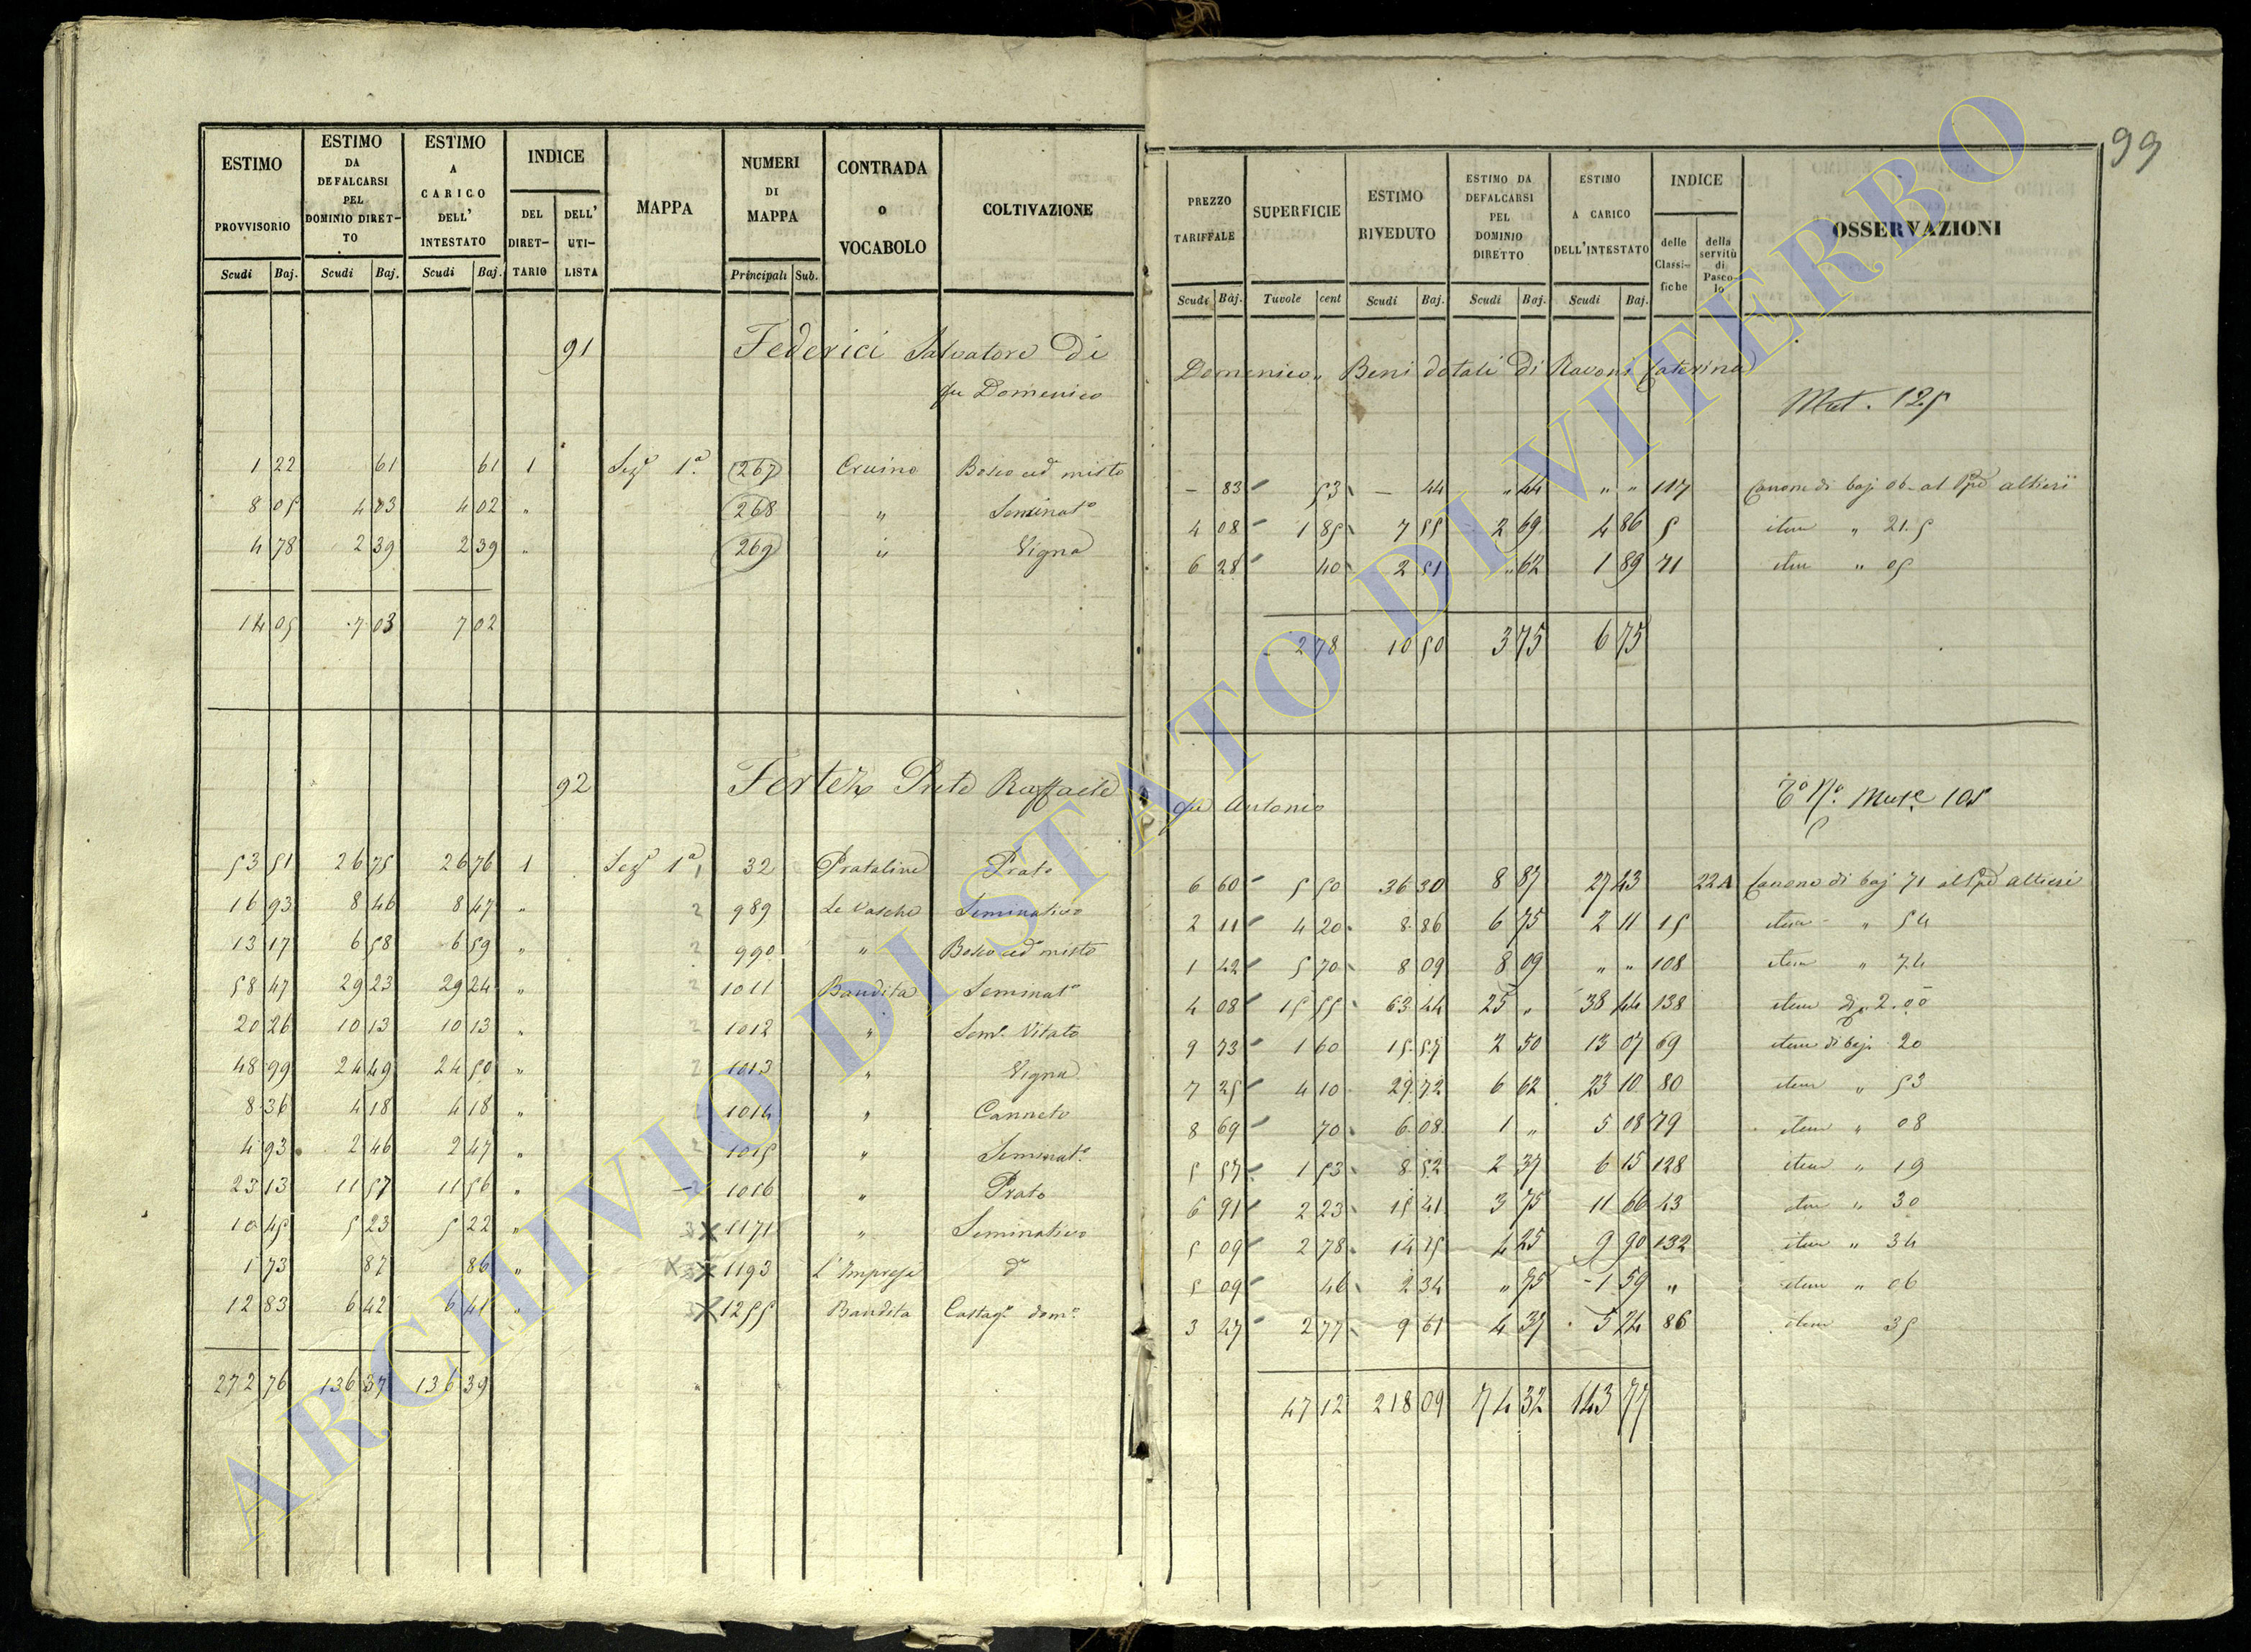 99
ESTIMO PROVVISORIO Scudi Baj.
ESTIMO DA DEFALCARSI PEL DOMINIO DIRET-TO Scudi Baj.
ESTIMO A CARICO DELL' INTESTATO Scudi Baj.
INDICE DEL DIRET-TARIO DELL' UTI-LISTA
MAPPA
NUMERI DI MAPPA Principali Sub.
CONTRADA O VOCABOLO
COLTIVAZIONE
PREZZO TARIFFALE Scudi Baj.
SUPERFICIE Tavole cent
ESTIMO RIVEDUTO Scudi Baj.
ESTIMO DA DEFALCARSI PEL DOMINIO DIRETTO Scudi Baj.
ESTIMO A CARICO DELL'INTESTATO Scudi Baj.
INDICE delle Classi-fiche della servitù di Pasco-lo
OSSERVAZIONI
91 Federici Salvatore di Domenico, Beni dotali di Ravoni Caterina
qu Domenico
Mut. 125
1 22 61 61 1 Sezᵉ 1ª 267 Craino Bosco ced misto – 83 53 – 44 " 44 " " 117 Canone di baj 06 al Ppe altieri
8 05 4 03 4 02 " 268 " Seminatº 4 08 1 85 7 55 2 69 4 86 5 item " 21.5
4 78 2 39 2 39 " 269 " Vigna 6 28 40 2 51 " 62 1 89 71 item " 05
14 05 7 03 7 02 2 78 10 50 3 75 6 75
92 Fertez Prete Raffaele qu Antonio
Mutᵉ 105
53 51 26 75 26 76 1 Sezᵉ 1ª 32 Prataline Prato 6 60 5 50 36 30 8 87 27 43 22A Canone di baj 71 al Ppe altieri
16 93 8 46 8 47 " 2 989 Le Vasche Seminativo 2 11 4 20 8 86 6 75 2 11 15 item " 54
13 17 6 58 6 59 " 2 990 " Bosco ced misto 1 42 5 70 8 09 8 09 " " 108 item " 74
58 47 29 23 29 24 " 2 1011 Bandita Seminatº 4 08 15 55 63 44 25 " 38 44 138 item di 2.00
20 26 10 13 10 13 " 2 1012 " Semº Vitato 9 73 1 60 15 57 2 50 13 07 69 item di baj 20
48 99 24 49 24 50 " 2 1013 " Vigna 7 25 4 10 29 72 6 62 23 10 80 item " 53
8 36 4 18 4 18 " 1014 " Canneto 8 69 70 6 08 1 " 5 08 79 item " 08
4 93 2 46 2 47 " 2 1015 " Seminatº 5 57 1 53 8 52 2 37 6 15 128 item " 19
23 13 11 57 11 56 " 2 1016 " Prato 6 91 2 23 15 41 3 75 11 66 43 item " 30
10 45 5 23 5 22 " 3 X 1171 " Seminativo 5 09 2 78 14 15 4 25 9 90 132 item " 34
1 73 87 86 " X 1193 L'Impresa dº 5 09 46 2 34 " 75 1 59 " item " 06
12 83 6 42 6 41 " X 1255 Bandita Castagº domº 3 47 2 77 9 61 4 37 5 24 86 item 35
272 76 136 37 136 39 47 12 218 09 74 32 143 77
ARCHIVIO DI STATO DI VITERBO